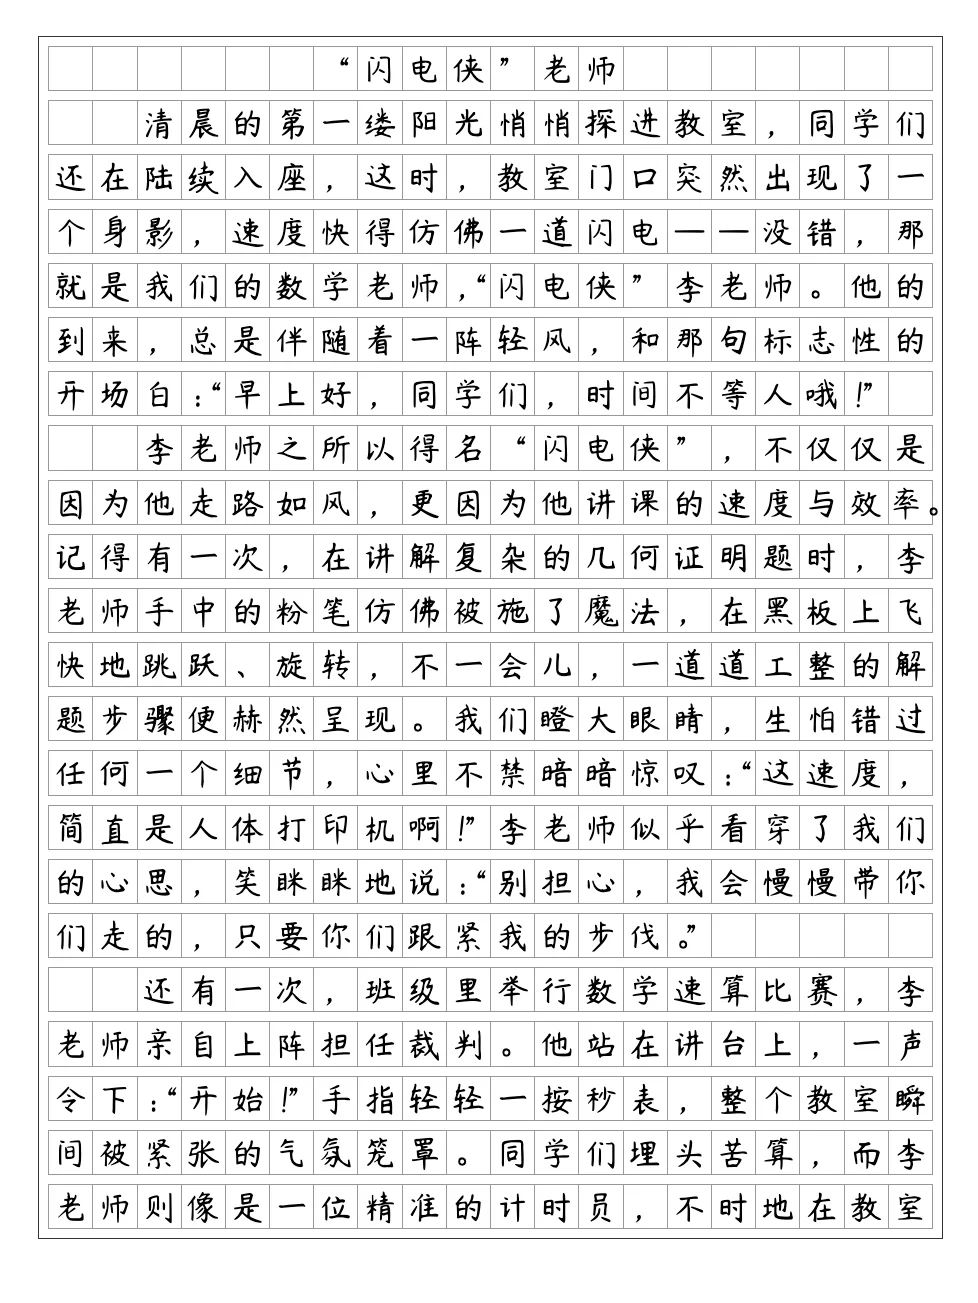 “闪电侠”老师
清晨的第一缕阳光悄悄探进教室，同学们
还在陆续入座，这时，教室门口突然出现了一
个身影，速度快得仿佛一道闪电——没错，那
就是我们的数学老师，“闪电侠”李老师。他的
到来，总是伴随着一阵轻风，和那句标志性的
开场白：“早上好，同学们，时间不等人哦！”
李老师之所以得名“闪电侠”，不仅仅是
因为他走路如风，更因为他讲课的速度与效率。
记得有一次，在讲解复杂的几何证明题时，李
老师手中的粉笔仿佛被施了魔法，在黑板上飞
快地跳跃、旋转，不一会儿，一道道工整的解
题步骤便赫然呈现。我们瞪大眼睛，生怕错过
任何一个细节，心里不禁暗暗惊叹：“这速度，
简直是人体打印机啊！”李老师似乎看穿了我们
的心思，笑眯眯地说：“别担心，我会慢慢带你
们走的，只要你们跟紧我的步伐。”
还有一次，班级里举行数学速算比赛，李
老师亲自上阵担任裁判。他站在讲台上，一声
令下：“开始！”手指轻轻一按秒表，整个教室瞬
间被紧张的气氛笼罩。同学们埋头苦算，而李
老师则像是一位精准的计时员，不时地在教室